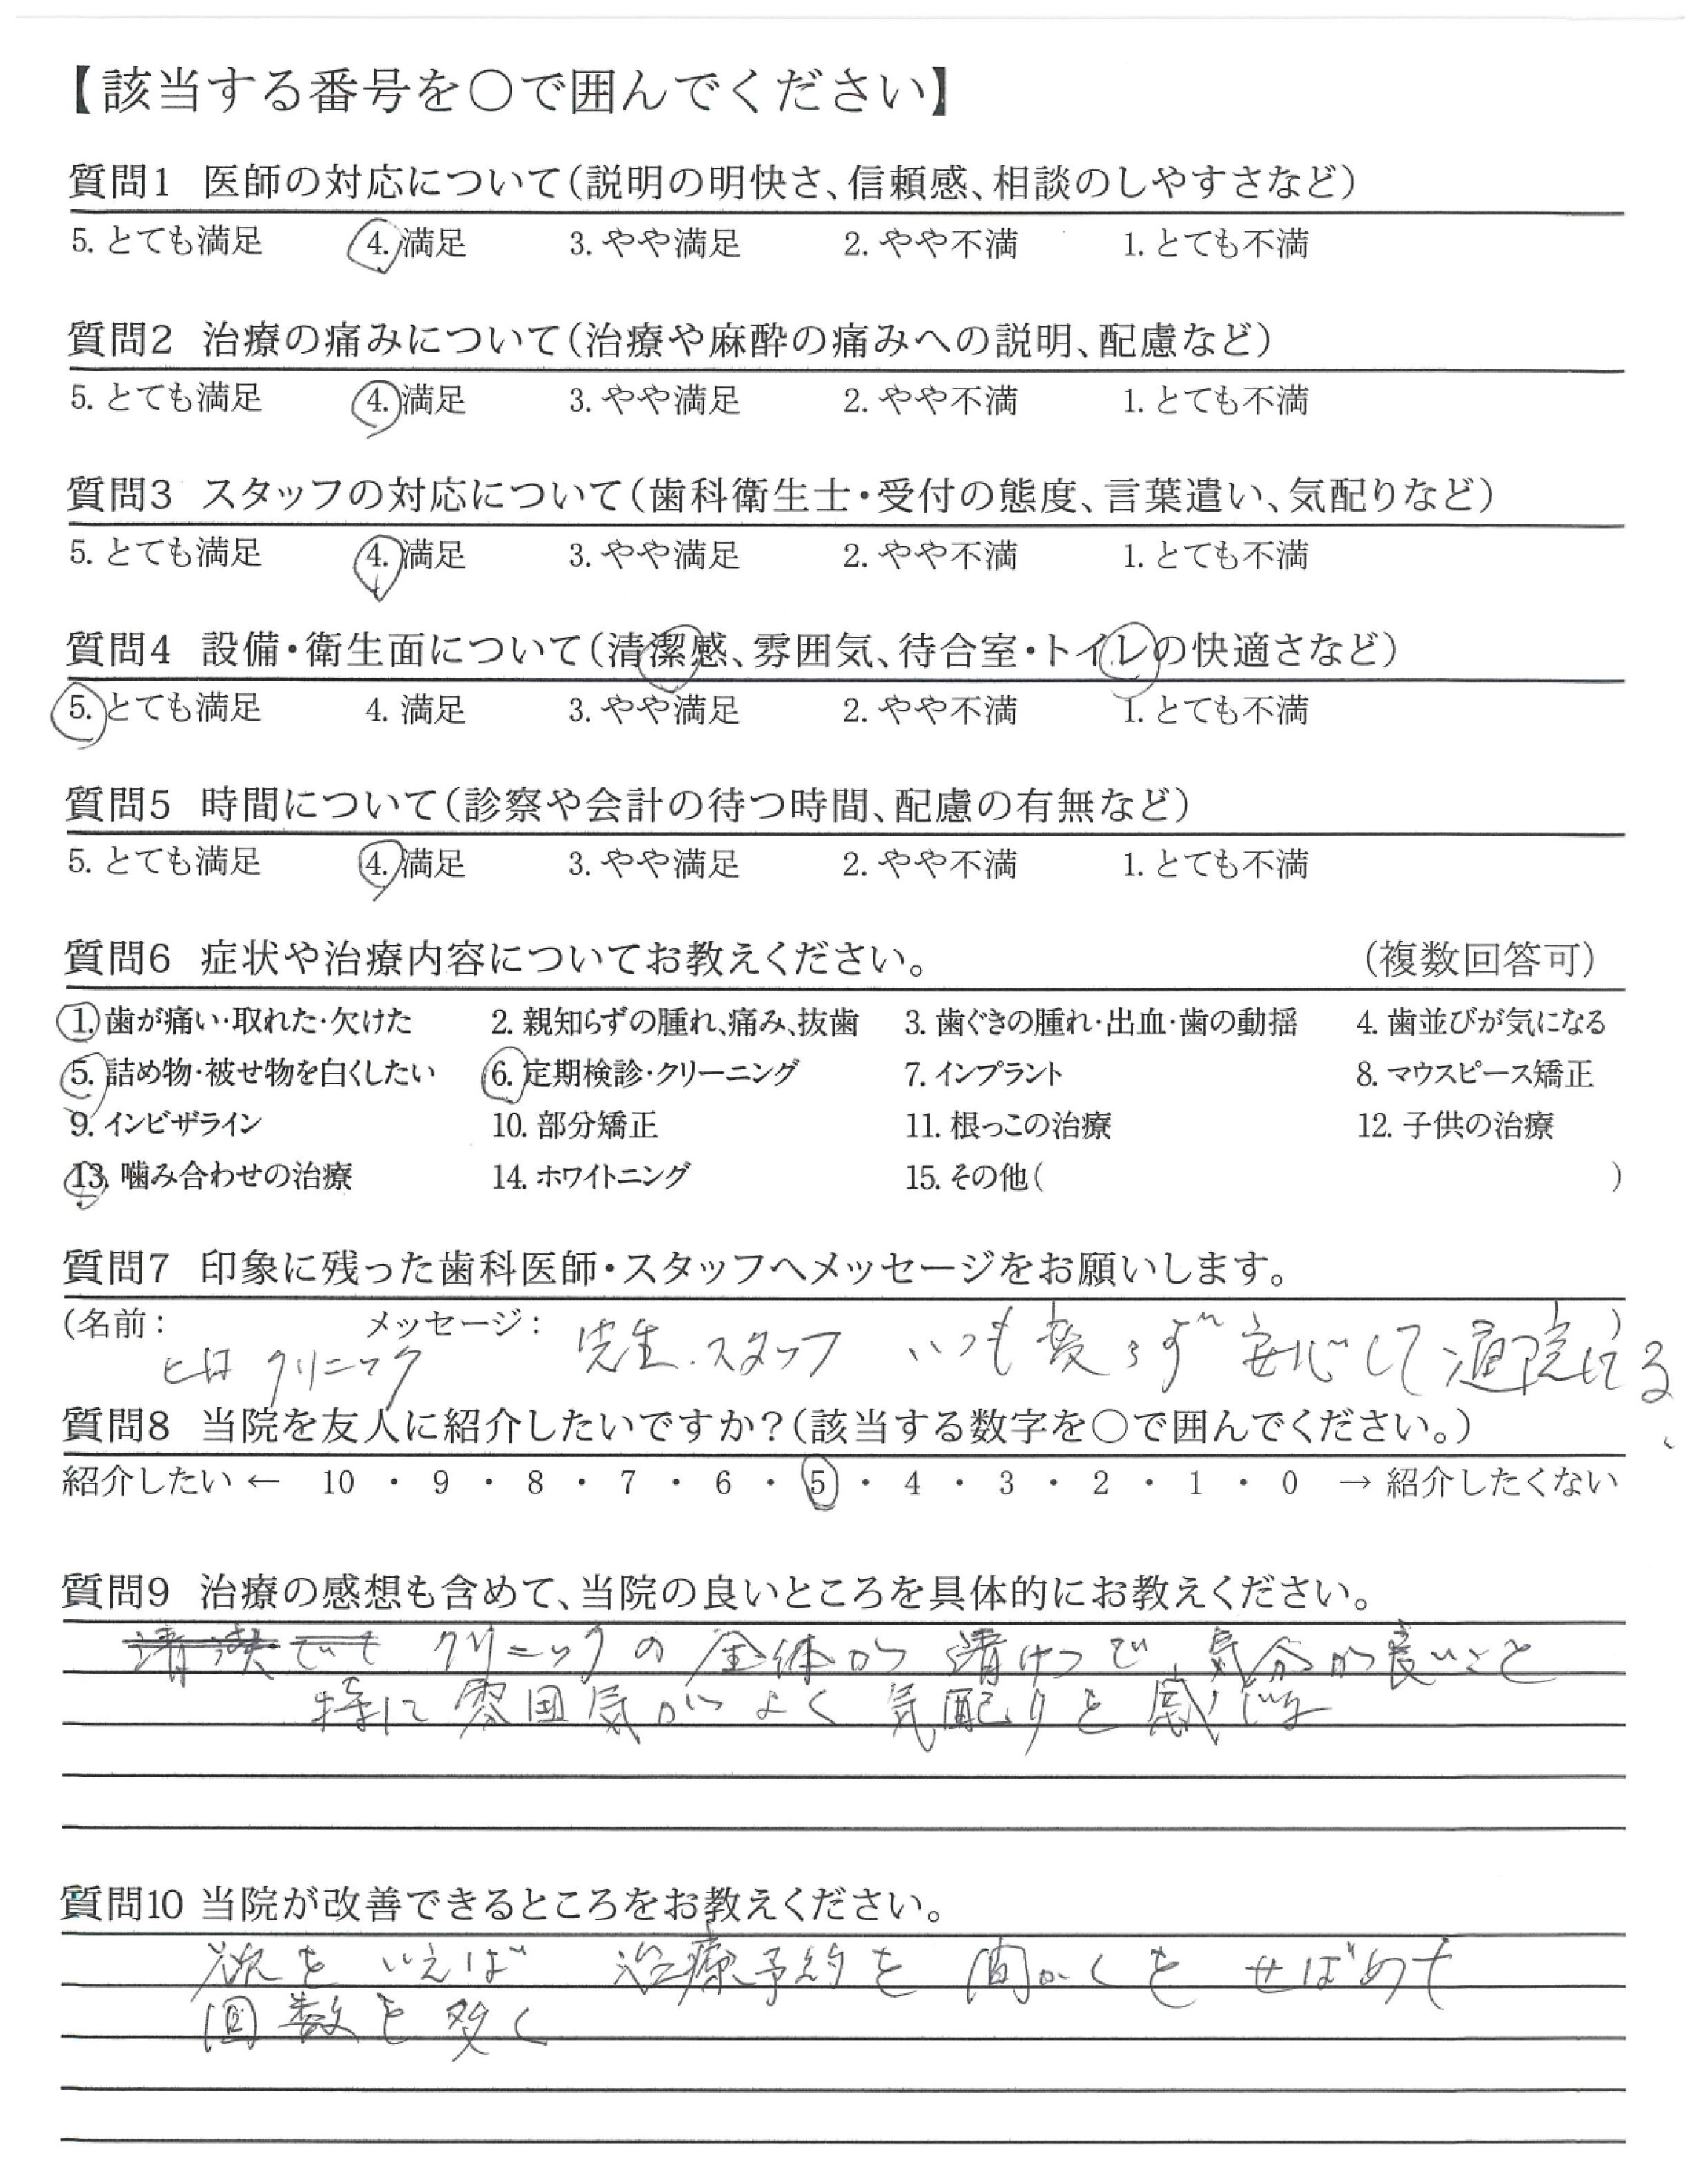 【該当する番号を○で囲んでください】
質問1 医師の対応について(説明の明快さ、信頼感、相談のしやすさなど)
5. とても満足 4. 満足 3. やや満足 2. やや不満 1. とても不満
質問2 治療の痛みについて(治療や麻酔の痛みへの説明、配慮など)
5. とても満足 4. 満足 3. やや満足 2. やや不満 1. とても不満
質問3 スタッフの対応について(歯科衛生士・受付の態度、言葉遣い、気配りなど)
5. とても満足 4. 満足 3. やや満足 2. やや不満 1. とても不満
質問4 設備・衛生面について(清潔感、雰囲気、待合室・トイレの快適さなど)
5. とても満足 4. 満足 3. やや満足 2. やや不満 1. とても不満
質問5 時間について(診察や会計の待つ時間、配慮の有無など)
5. とても満足 4. 満足 3. やや満足 2. やや不満 1. とても不満
質問6 症状や治療内容についてお教えください。 (複数回答可)
1. 歯が痛い・取れた・欠けた 2. 親知らずの腫れ、痛み、抜歯 3. 歯ぐきの腫れ・出血・歯の動揺 4. 歯並びが気になる
5. 詰め物・被せ物を白くしたい 6. 定期検診・クリーニング 7. インプラント 8. マウスピース矯正
9. インビザライン 10. 部分矯正 11. 根っこの治療 12. 子供の治療
13. 噛み合わせの治療 14. ホワイトニング 15. その他( )
質問7 印象に残った歯科医師・スタッフへメッセージをお願いします。
(名前: メッセージ: )
クリニック 先生.スタッフ いつも変らず 安心して通院してる
質問8 当院を友人に紹介したいですか?(該当する数字を○で囲んでください。)
紹介したい ← 10 ・ 9 ・ 8 ・ 7 ・ 6 ・ 5 ・ 4 ・ 3 ・ 2 ・ 1 ・ 0 → 紹介したくない
質問9 治療の感想も含めて、当院の良いところを具体的にお教えください。
クリニックの全体が清けつで 気分が良いこと
特に雰囲気がよく 気配りを感じる
質問10 当院が改善できるところをお教えください。
欲をいえば 治療予約を 間かくを せばめて
回数を多く